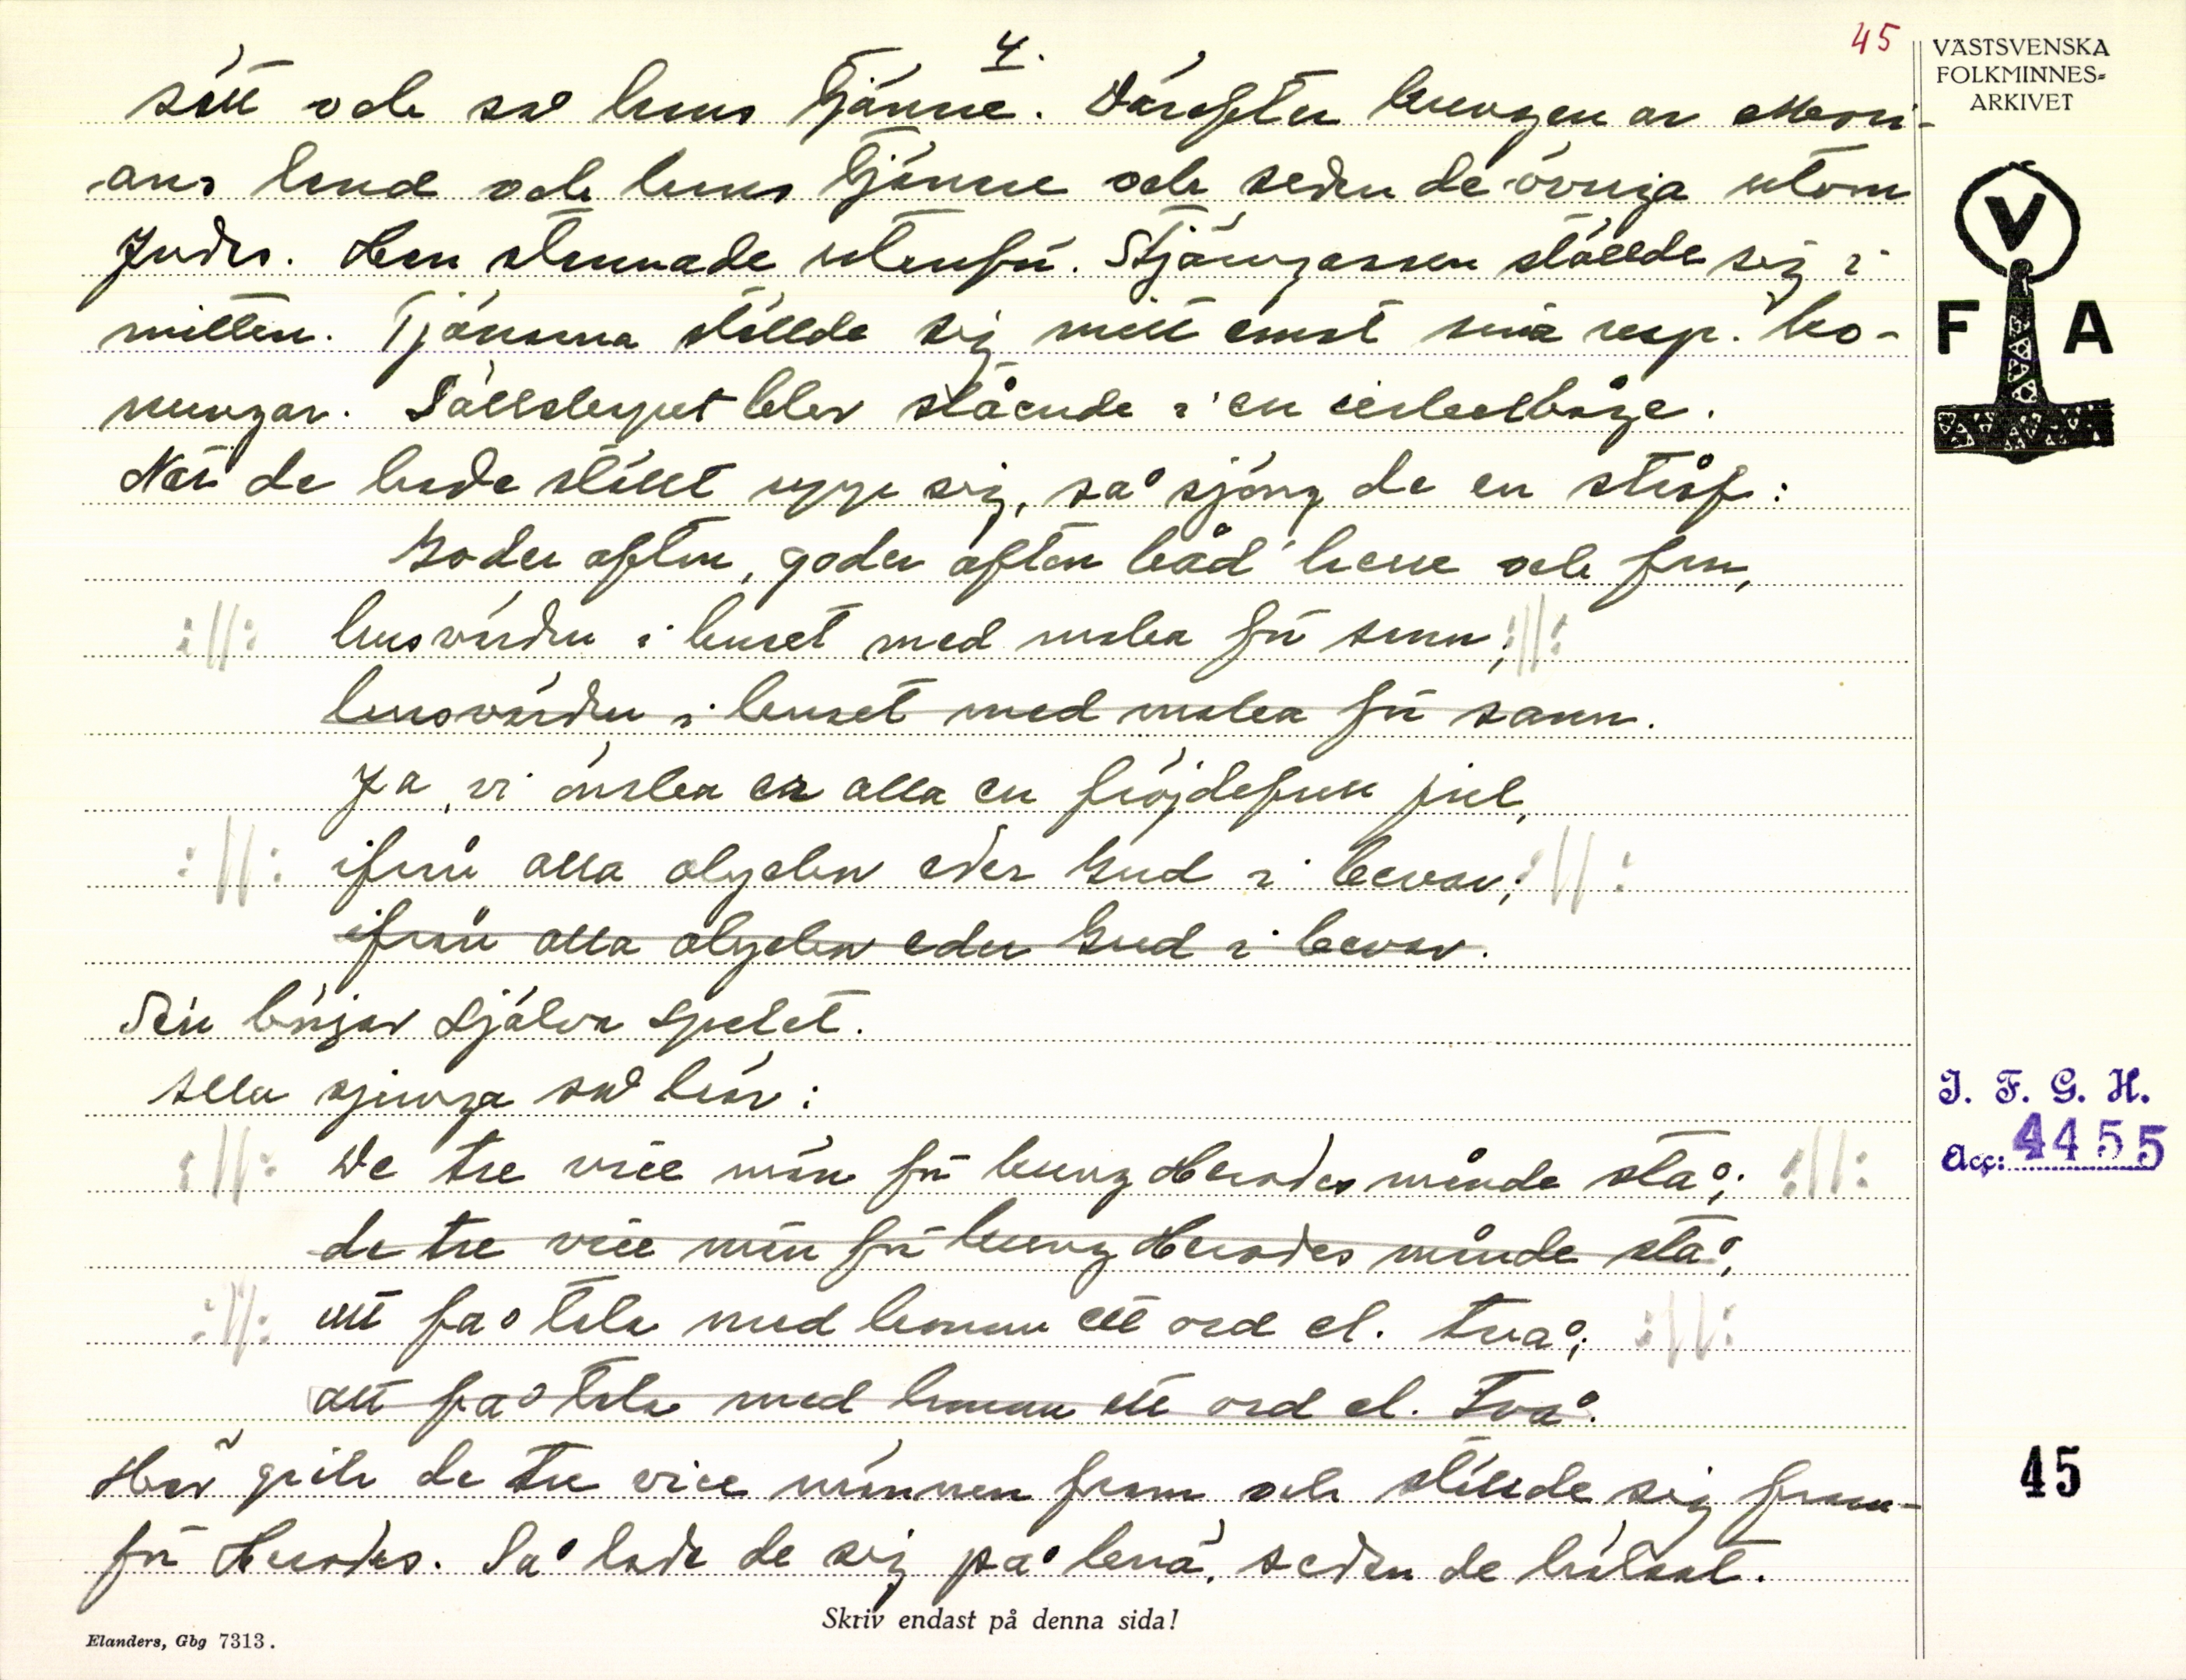 4.
45
VÄSTSVENSKA
FOLKMINNES-
ARKIVET
sätt och så hans tjänare. Därefter kungen av Mori-
ans land och hans tjänare och sedan de övriga utom
Judas. Han stannade utanför. Stjärngossen ställde sig i
mitten. Tjänarna ställde sig mitt emot sina resp. ko-
nungar. Sällskapet blev stående i en cirkelbåge.
När de hade ställt upp sig, så sjöng de en strof:
Goder afton, goder afton båd' herre och fru,
:||: husvärden i huset med maka för sann; :||:
husvärden i huset med maka för sann.
Ja, vi önska er alla en fröjdefull jul,
:||: ifrån alla olyckor eder Gud i bevar; :||:
ifrån alla olyckor eder Gud i bevar.
Sen börjar själva spelet.
Alla sjunga så här:
:||: De tre vise män för kung Herodes månde stå; :||:
de tre vise män för kung Herodes månde stå;
:||: att få tala med honom ett ord el. två; :||:
att få tala med honom ett ord el. två.
Här gick de tre vise männen fram och ställde sig fram-
för Herodes. Så lade de sig på knä, sedan de hälsat.
V
F A
I. F. G. H.
Acc: 4455
45
Skriv endast på denna sida!
Elanders, Gbg 7313.